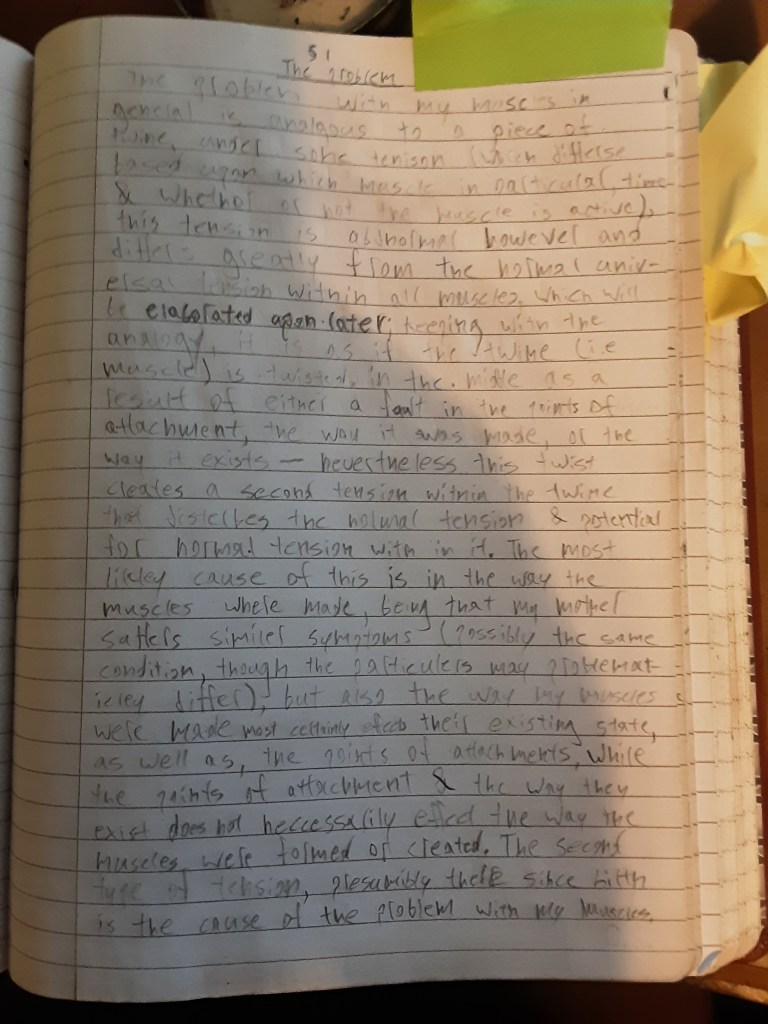 §1
The problem
The problem with my muscles in
general is analagous to a piece of
twine, under some tenison (which differse
based upon which muscle in particular, time
& whether or not the muscle is active),
this tension is abnormal however and
differs greatly from the normal univ-
ersal tension within all muscles, which will
be elaborated apon later; keeping with the
analogy, it is as if the twine (i.e
muscle) is twisted, in the middle as a
result of either a fault in the points of
attachment, the way it was made, or the
way it exists — nevertheless this twist
creates a second tension within the twine
that disterbes the natural tension & potential
for normal tension with in it. The most
likley cause of this is in the way the
muscles where made, being that my mother
saffers similer symptoms (possibly the same
condition, though the particulers may problemat-
icley differ), but also the way my muscles
were made most certainly efects their existing state,
as well as, the points of attachments, while
the points of attachment & the way they
exist does not neccessarily effect the way the
muscles were formed or created. The second
type of tension, presumibly there since birth
is the cause of the problem with my muscles.